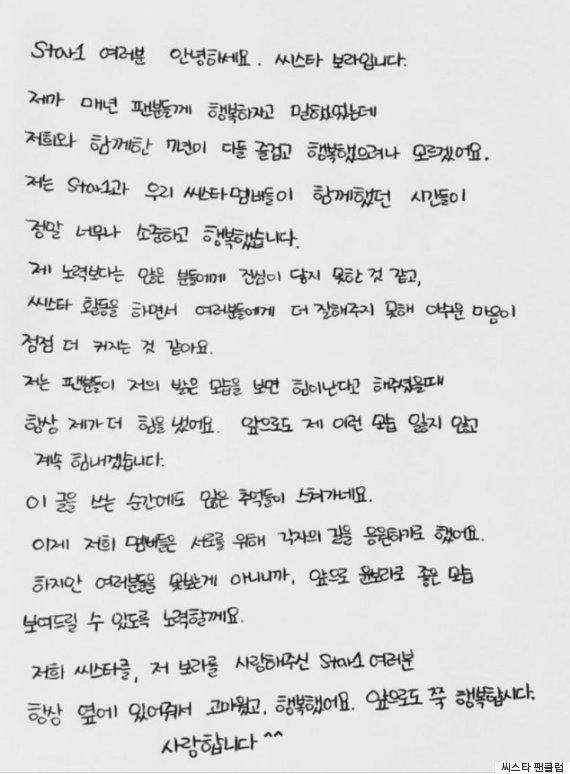 Star1 여러분 안녕하세요. 씨스타 보라입니다.
제가 매년 팬분들께 행복하자고 말했었는데
저희와 함께한 7년이 다들 즐겁고 행복했으려나 모르겠어요.
저는 Star1과 우리 씨스타 멤버들이 함께했던 시간들이
정말 너무나 소중하고 행복했습니다.
제 노력보다는 많은 분들에게 진심이 닿지 못한 것 같고,
씨스타 활동을 하면서 여러분들에게 더 잘해주지 못해 아쉬운 마음이
점점 더 커지는 것 같아요.
저는 팬분들이 저의 밝은 모습을 보면 힘이난다고 해주셨을때
항상 제가 더 힘을 냈어요. 앞으로도 제 이런 모습 잃지 않고
계속 힘내겠습니다.
이 글을 쓰는 순간에도 많은 추억들이 스쳐가네요.
이제 저희 멤버들은 서로를 위해 각자의 길을 응원하기로 했어요.
하지만 여러분들을 못보는게 아니니까, 앞으로 윤보라로 좋은 모습
보여드릴 수 있도록 노력할게요.
저희 씨스타를, 저 보라를 사랑해주신 Star1 여러분
항상 옆에 있어줘서 고마웠고, 행복했어요. 앞으로도 쭉 행복합시다.
사랑합니다 ^^
씨스타 팬클럽